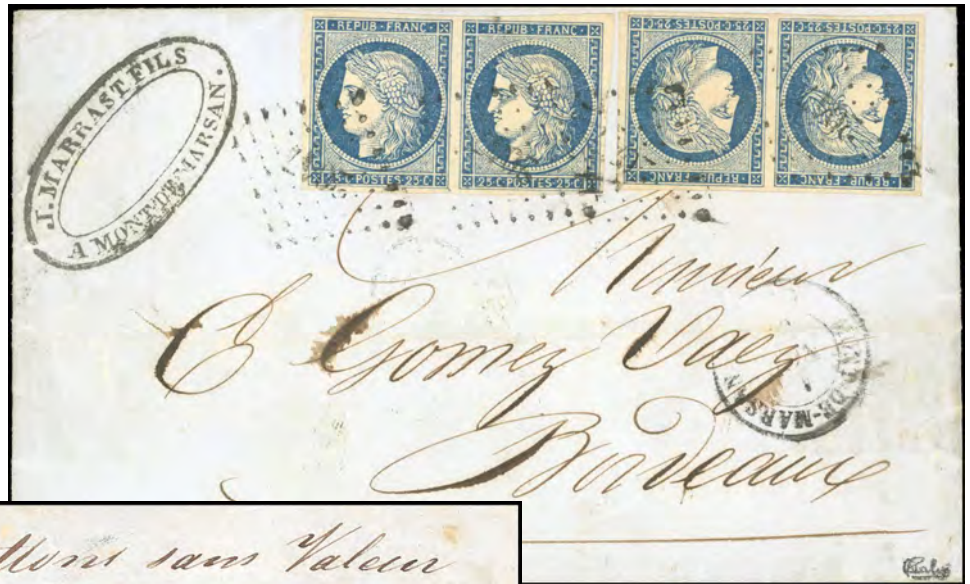 J. MARRAST FILS
A MONT-DE-MARSAN.
REPUB·FRANC·
25C·POSTES·25C·
REPUB·FRANC·
25C·POSTES·25C·
REPUB·FRANC·
25·C·POSTES·25·C
REPUB·FRANC·
25·C·POSTES·25·C
Monsieur
E Gomez Vaez
Bordeaux
MONT-DE-MARSAN
sans Valeur